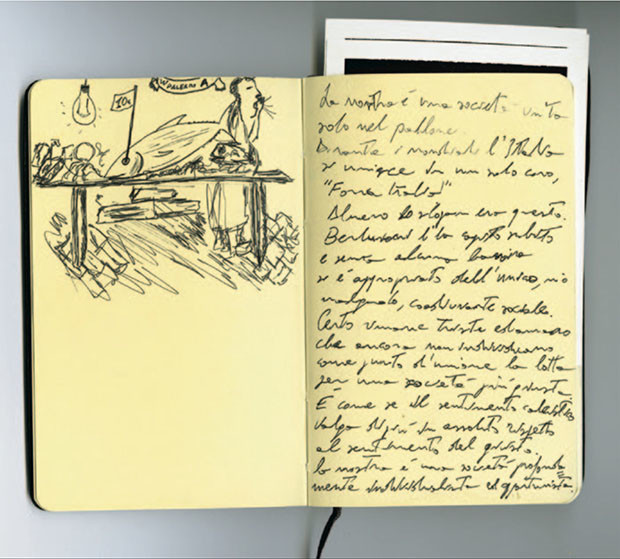 PALERMO
10€
La nostra è una società unita
solo nel pallone.
Durante i mondiali l'Italia
si unisce in un solo coro,
"Forza Italia!"
Almeno lo slogan era questo.
Berlusconi l'ha capito subito
e senza alcuna
si è appropriato dell'unico, mio
malgrado, coadiuvante sociale.
Certo rimane triste ed amaro
che ancora non individuiamo
come punto d'unione la lotta
per una società più giusta.
È come se il sentimento calcistico
valga di più in assoluto rispetto
al sentimento del giusto.
la nostra è una società profonda
mente individualista ed opportunista.